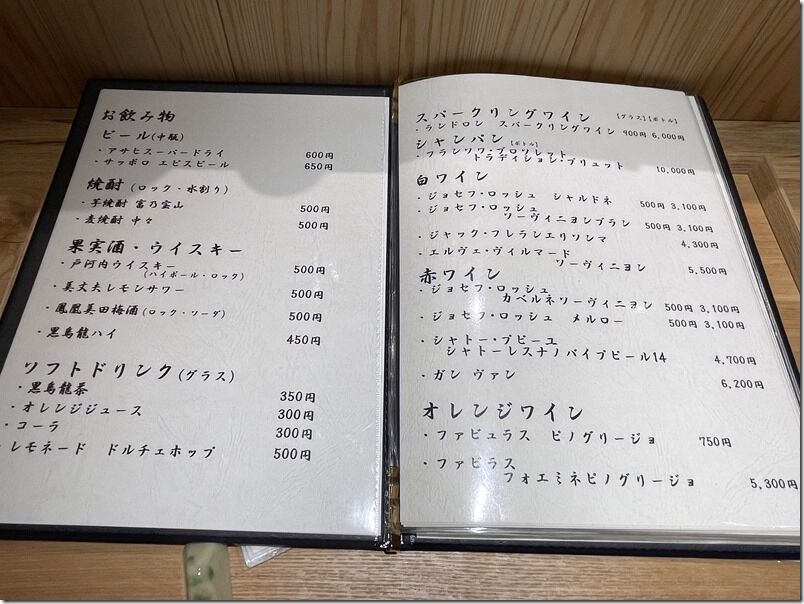 お飲み物
ビール(中瓶)
・アサヒスーパードライ 600円
・サッポロ エビスビール 650円
焼酎(ロック・水割り)
・芋焼酎 富乃宝山 500円
・麦焼酎 中々 500円
果実酒・ウイスキー
・戸河内ウイスキー 500円
(ハイボール・ロック)
・美丈夫レモンサワー 500円
・鳳凰美田梅酒(ロック・ソーダ) 500円
・黒烏龍ハイ 450円
ソフトドリンク(グラス)
・黒烏龍茶 350円
・オレンジジュース 300円
・コーラ 300円
レモネード ドルチェホップ 500円
スパークリングワイン [グラス][ボトル]
・ランドロン スパークリングワイン 900円 6,000円
シャンパン [ボトル]
・フランソワ・ブロソレット
トラディション・ブリュット 10,000円
白ワイン
・ジョセフ・ロッシュ シャルドネ 500円 3,100円
・ジョセフ・ロッシュ
ソーヴィニヨンブラン 500円 3,100円
・ジャック・フレランエリソンマ 4,300円
・エルヴェ・ヴィルマード
ソーヴィニヨン 5,500円
赤ワイン
・ジョセフ・ロッシュ
カベルネソーヴィニヨン 500円 3,100円
・ジョセフ・ロッシュ メルロー 500円 3,100円
・シャトー・プピーユ
シャトーレスナノバイプピール14 4,700円
・ガン ヴァン 6,200円
オレンジワイン
・ファビュラス ピノグリージョ 750円
・ファビラス
フォエミネピノグリージョ 5,300円